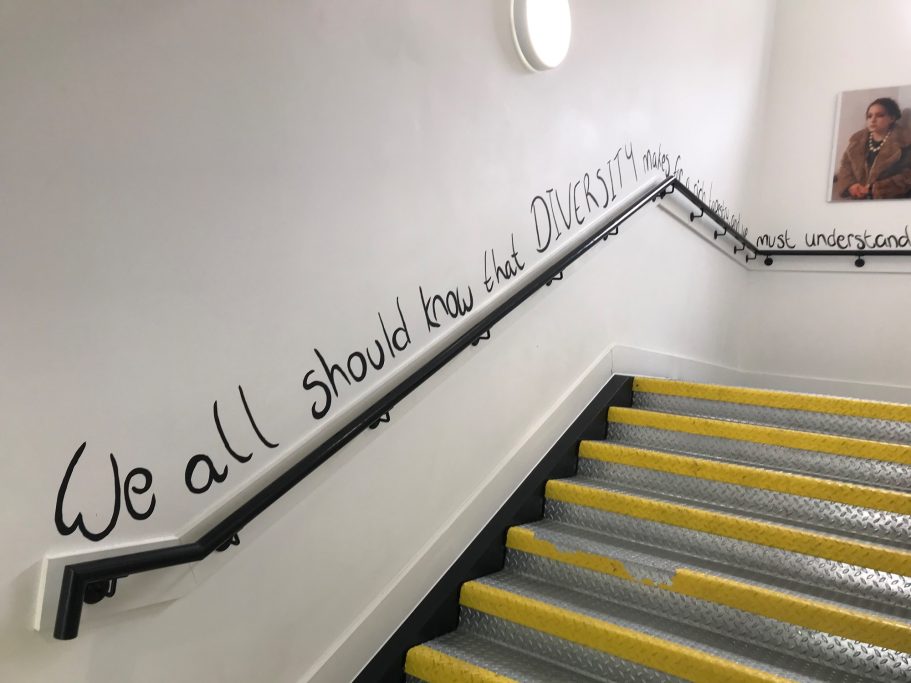 We all should know that DIVERSITY makes for a rich tapestry, and we must understand